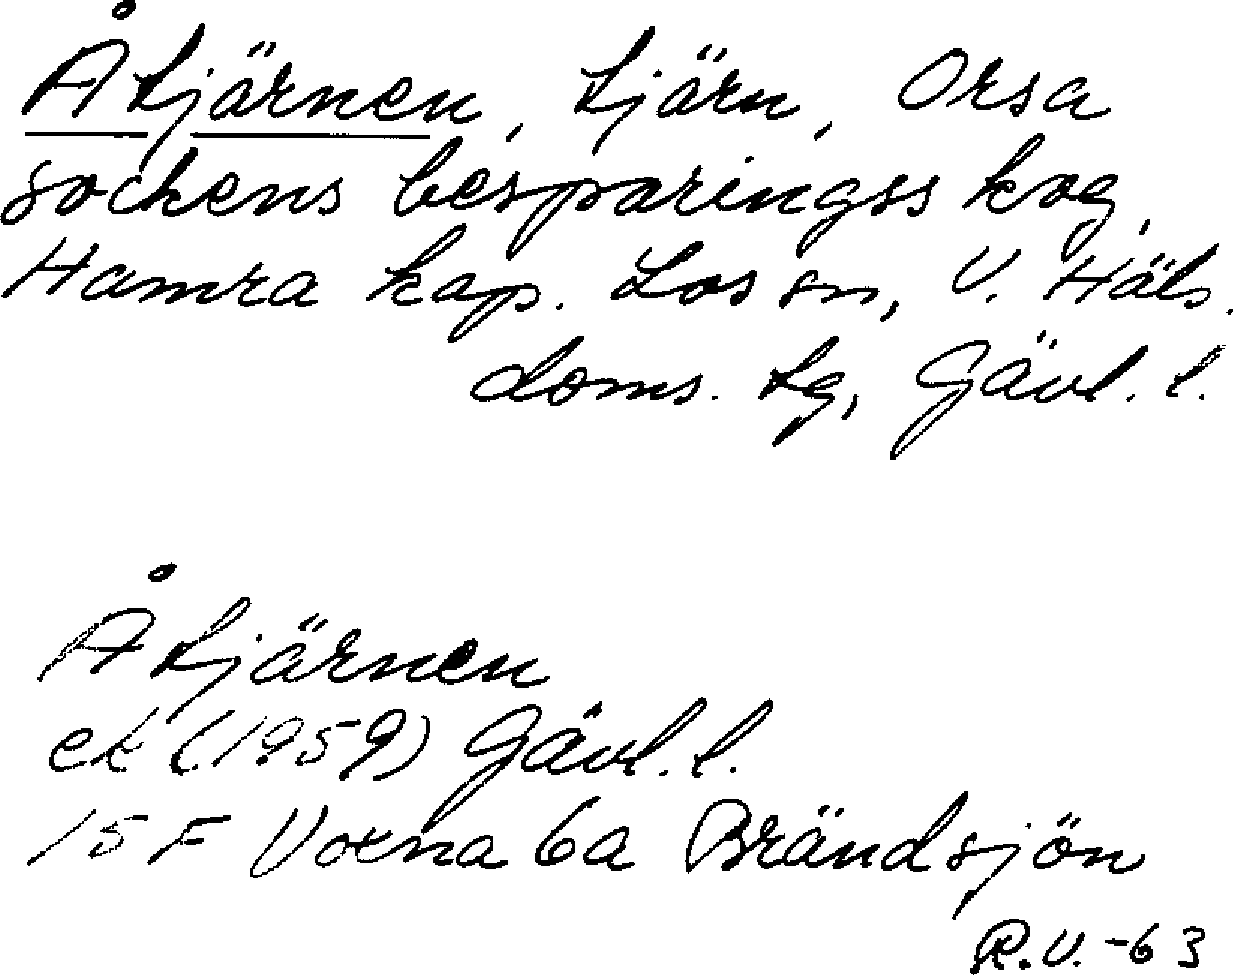 Åtjärnen, tjärn, Orsa
sockens besparingsskog,
Hamra kap. Los sn, V. Häls.
doms. tg, Gävl. l.
Åtjärnen
ek (1959) Gävl. l.
15 F Voxna 6a Brändsjön
R.V. -63